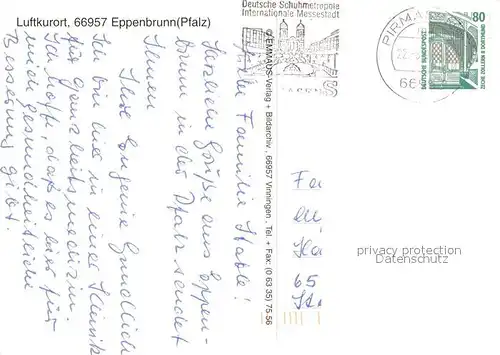 Luftkurort, 66957 Eppenbrunn(Pfalz)
Deutsche Schuhmetropole
Internationale Messestadt
PIRMAS
22.
66
80
DEUTSCHE BUNDESPOST
ZECHE ZOLLERN II DORTMUND
© EMMAUS-Verlag + Bildarchiv . 66957 Vinningen . Tel. + Fax: (0 63 35) 75 56
Familie Stable!
Herzliche Grüße aus Eppen-
brunn in der Pfalz sendet
Ihnen
Ihre Eugenie Gundlich
Ich bin hier in einer Klinik
für Ganzheitsmedizin.
Ich hoffe, daß es hier für
mich gesundheitlich
Besserung gibt.
Fa
65
privacy protection
Datenschutz